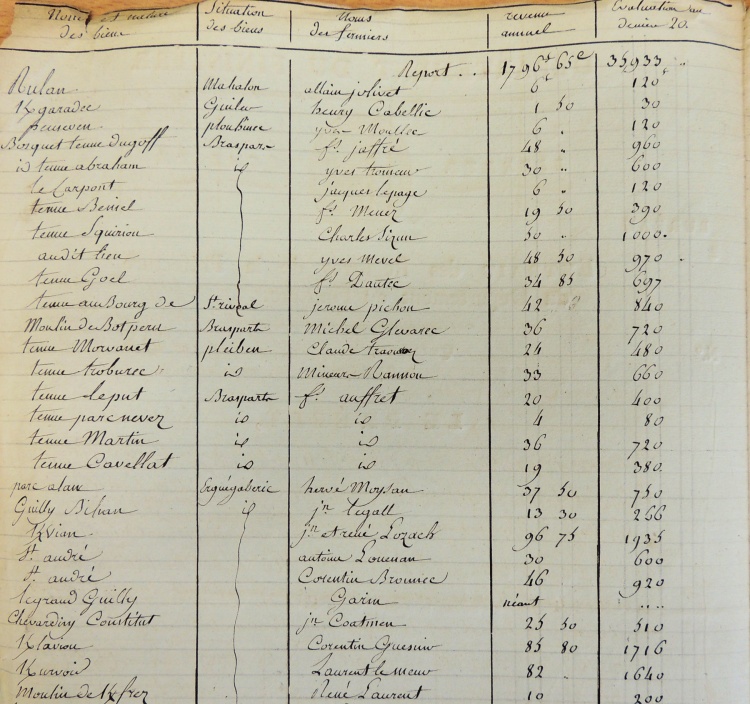 Noms et nature des biens | Situation des biens | Noms des fermiers | revenu annuel | Evaluation au denier 20.
Report . . | 1796# 65c | 35933 "
Rulan | Mahalon | allain jolivet | 6# | 120#
Kgaradec | Guiler | henry Cabellic | 1 50 | 30
penneven | plouhinec | yves Moullec | 6 " | 120
Bosquet tenue dugoff | Braspars | fs. jaffré | 48 " | 960
id tenue abraham | id | yves tromeur | 30 " | 600
le Carpont | jacques lepage | 6 " | 120
tenue Beniel | fs. Menez | 19 50 | 390
tenue Squiriou | Charles Sizun | 50 " | 1000.
audit lieu | yves Mevel | 48 50 | 970
tenue Goel | fs. Dantec | 34 85 | 697
tenue au Bourg de | St. rivoal | jerome pichon | 42 | 840
Moulin de Botpern | Brasparts | Michel Glevarec | 36 | 720
tenue Morvanet | pleiben | Claude | 24 | 480
tenue troburec | id | Mineurs Rannou | 33 | 660
tenue leput | Brasparts | fs. auffret | 20 | 400
tenue parc nevez | id | id | 4 | 80
tenue Martin | id | id | 36 | 720
tenue Cavellat | id | id | 19 | 380
parc alan | Erguégaberic | hervé Moysan | 37 50 | 750
Guilly Bihan | id | jn. legall | 13 30 | 266
Kvian | jn. et rené Lozach | 96 75 | 1935
St. andré | antoine Louenan | 30 | 600
St. andré | Corentin | 46 | 920
legrand Guilly | Garin | néant | . . . .
Chevardiry Constitut | jn. Coatmen | 25 50 | 510
Klaviou | Corentin Guesnin | 85 80 | 1716
Kurvoid | Laurent le meur | 82 " | 1640
Moulin de Kfrez | René Laurent | 10 | 200